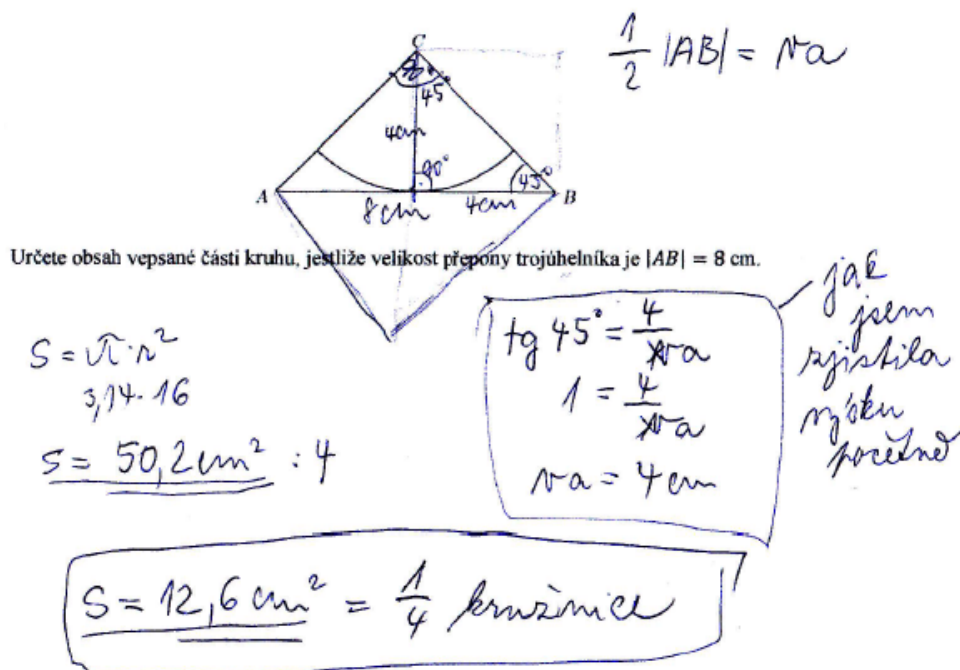 1/2 |AB| = va
C
45°
4cm
90°
45°
A
8cm
4cm
B
Určete obsah vepsané části kruhu, jestliže velikost přepony trojúhelníka je |AB| = 8 cm.
S = π·r²
3,14·16
S = 50,2 cm² : 4
tg 45° = 4/va
1 = 4/va
va = 4 cm
jak
jsem
zjistila
výšku
početně
S = 12,6 cm² = 1/4 kružnice